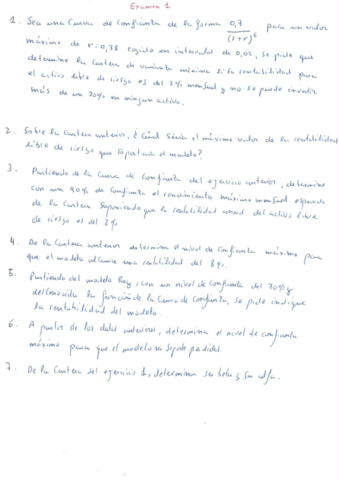 Examen 1
1. Sea una Curva de Confianza de la forma 0,7 / (1+r)^6 para un valor
máximo de r=0,38 cogido en intervalos de 0,02, se pide que
determine la Cartera de varianza mínima si la rentabilidad para
el activo libre de riesgo es del 2% mensual y no se puede invertir
más de un 20% en ningún activo.
2. Sobre la Cartera anterior, ¿Cuál sería el máximo valor de la rentabilidad
libre de riesgo que soportaría el modelo?
3. Partiendo de la Curva de Confianza del ejercicio anterior, determine
con un 90% de confianza el rendimiento máximo mensual esperado
de la Cartera suponiendo que la rentabilidad anual del activo libre
de riesgo es del 2%
4. De la Cartera anterior determina el nivel de Confianza máximo para
que el modelo alcance una rentabilidad del 8%.
5. Partiendo del modelo Ray, con un nivel de confianza del 70% y
desconocida la función de la Curva de Confianza, se pide indique
la rentabilidad del modelo.
6. A partir de los datos anteriores, determina el nivel de confianza
máximo para que el modelo no soporte pérdidas.
7. De la Cartera del ejercicio 6, determina su beta y su alfa.